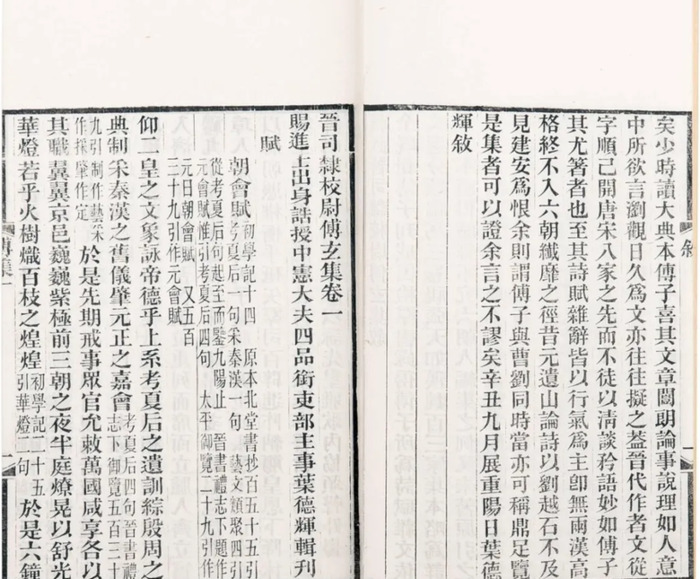 矣少時讀大典本傅子喜其文章闓朗論事說理如人意
中所欲言瀏觀日久爲文亦往往擬之葢晉代作者文從
字順已開唐宋八家之先而不徒以淸談矜語妙如傅子
其尤箸者也至其詩賦雜辭皆以行氣爲主卽無兩漢高
格終不入六朝纖靡之徑昔元遺山論詩以劉越石不及
見建安爲恨余則謂傅子與曹劉同時當亦可稱鼎足覽
是集者可以證余言之不謬矣辛丑九月展重陽日葉德
輝敘
敘
晉司隸校尉傅玄集卷一
賜進士出身誥授中憲大夫四品銜吏部主事葉德輝輯刊
賦
朝會賦初學記十四引考夏后一句采秦漢一句 藝文類聚四引
從考夏后句起至而鑒九陽止 晉書禮志下題作
元會賦惟引考夏后四句 太平御覽二十九引作
元日朝會賦 又五百
三十九引作元會賦
仰二皇之文象詠帝德乎上系考夏后之遺訓綜殷周之
典制采秦漢之舊儀肇元正之嘉會
於是先期戒事眾官允敕萬國咸享各以
其職翼翼京邑巍巍紫極前三朝之夜半庭燎晃以舒光
華燈若乎火樹熾百枝之煌煌初學記二十五
引華燈二句於是六鐘